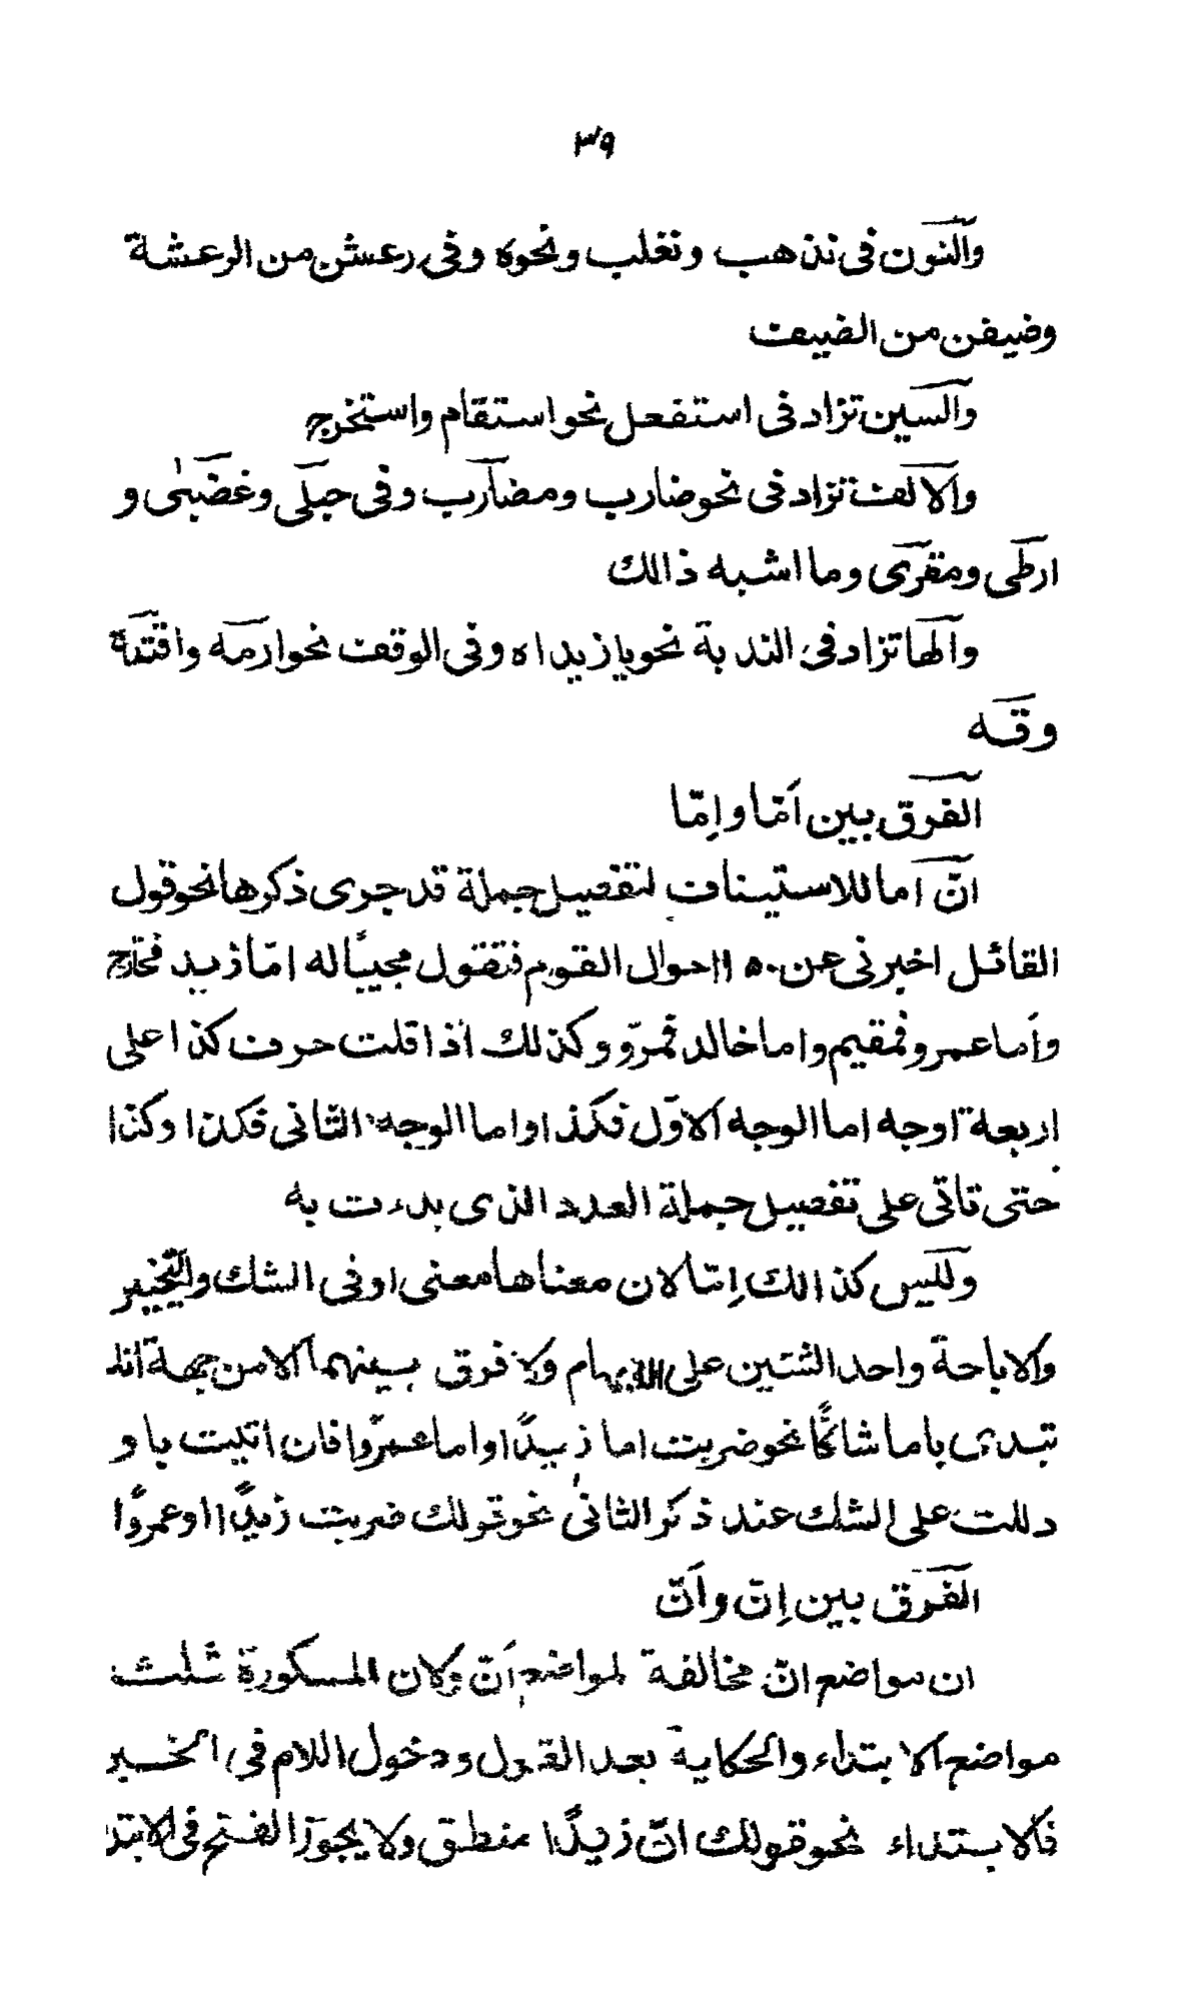 ٣٩
والنون فى نذهب ونغلب ونحوه وفى رعشن من الرعشة
وضيفن من الضيف
والسين تزاد فى استفعل نحو استقام واستخرج
والالف تزاد فى نحو ضارب ومضارب وفى حبلى وغضبى و
ارطى ومقرى وما اشبه ذالك
والها تزاد فى الندبة نحو يا زيداه وفى الوقف نحو ارمه واقتده
وقه
الفرق بين اَمّا واِمّا
انّ اَما للاستيناف لتفصيل جملة قد جرى ذكرها نحو قول
القائل اخبرنى عن احوال القوم فتقول مجيبًا له امّا زيد فخارج
واَما عمرو فمقيم واما خالد فمرّو وكذلك اذا قلت حرف كذا على
اربعة اوجه اما الوجه الاوّل فكذا واما الوجه الثانى فكذا وكذا
حتى تاتى على تفصيل جملة العدد الذى بدءت به
وليس كذالك اِمّا لان معناها معنى او فى الشك والتخيير
والاباحة واحد الشئين على الابهام ولا فرق بينهما الا من جهة انك
تبدى باما شاكًّا نحو ضربت اما زيدًا واما عمروًا فان اتيت باو
دللت على الشك عند ذكر الثانى نحو قولك ضربت زيدًا او عمروًا
الفرق بين اِنّ واَنّ
ان مواضع انّ مخالفة لمواضع اَنّ ولان المسكورة ثلث
مواضع الابتداء والحكاية بعد القول ودخول اللام فى الخبر
فالابتداء نحو قولك انّ زيدًا منطق ولا يجوز الفتح فى الابتد